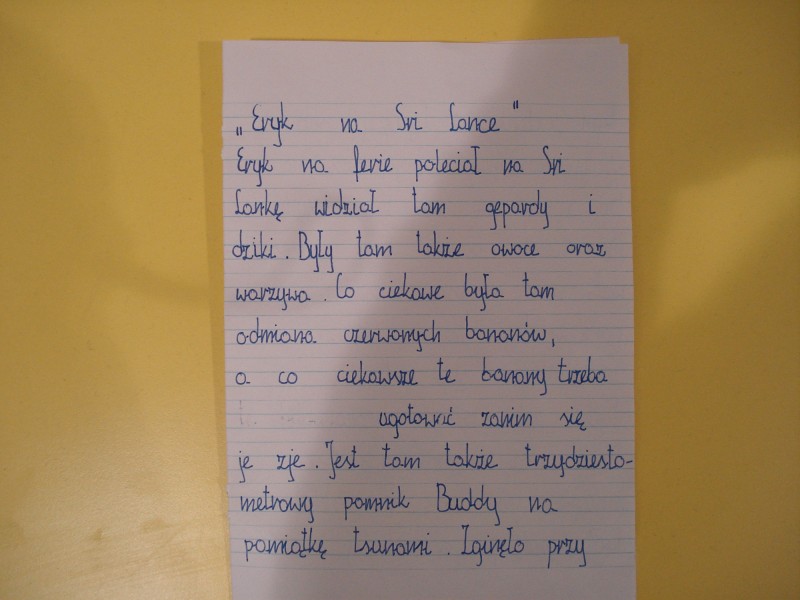 „Eryk na Sri Lance"
Eryk na ferie poleciał na Sri
Lankę widział tam gepardy i
dziki. Były tam także owoce oraz
warzywa. Co ciekawe była tam
odmiana czerwonych bananów,
a co ciekawsze te banany trzeba
ugotować zanim się
je zje. Jest tam także trzydziesto-
metrowy pomnik Buddy na
pamiątkę tsunami. Zginęło przy